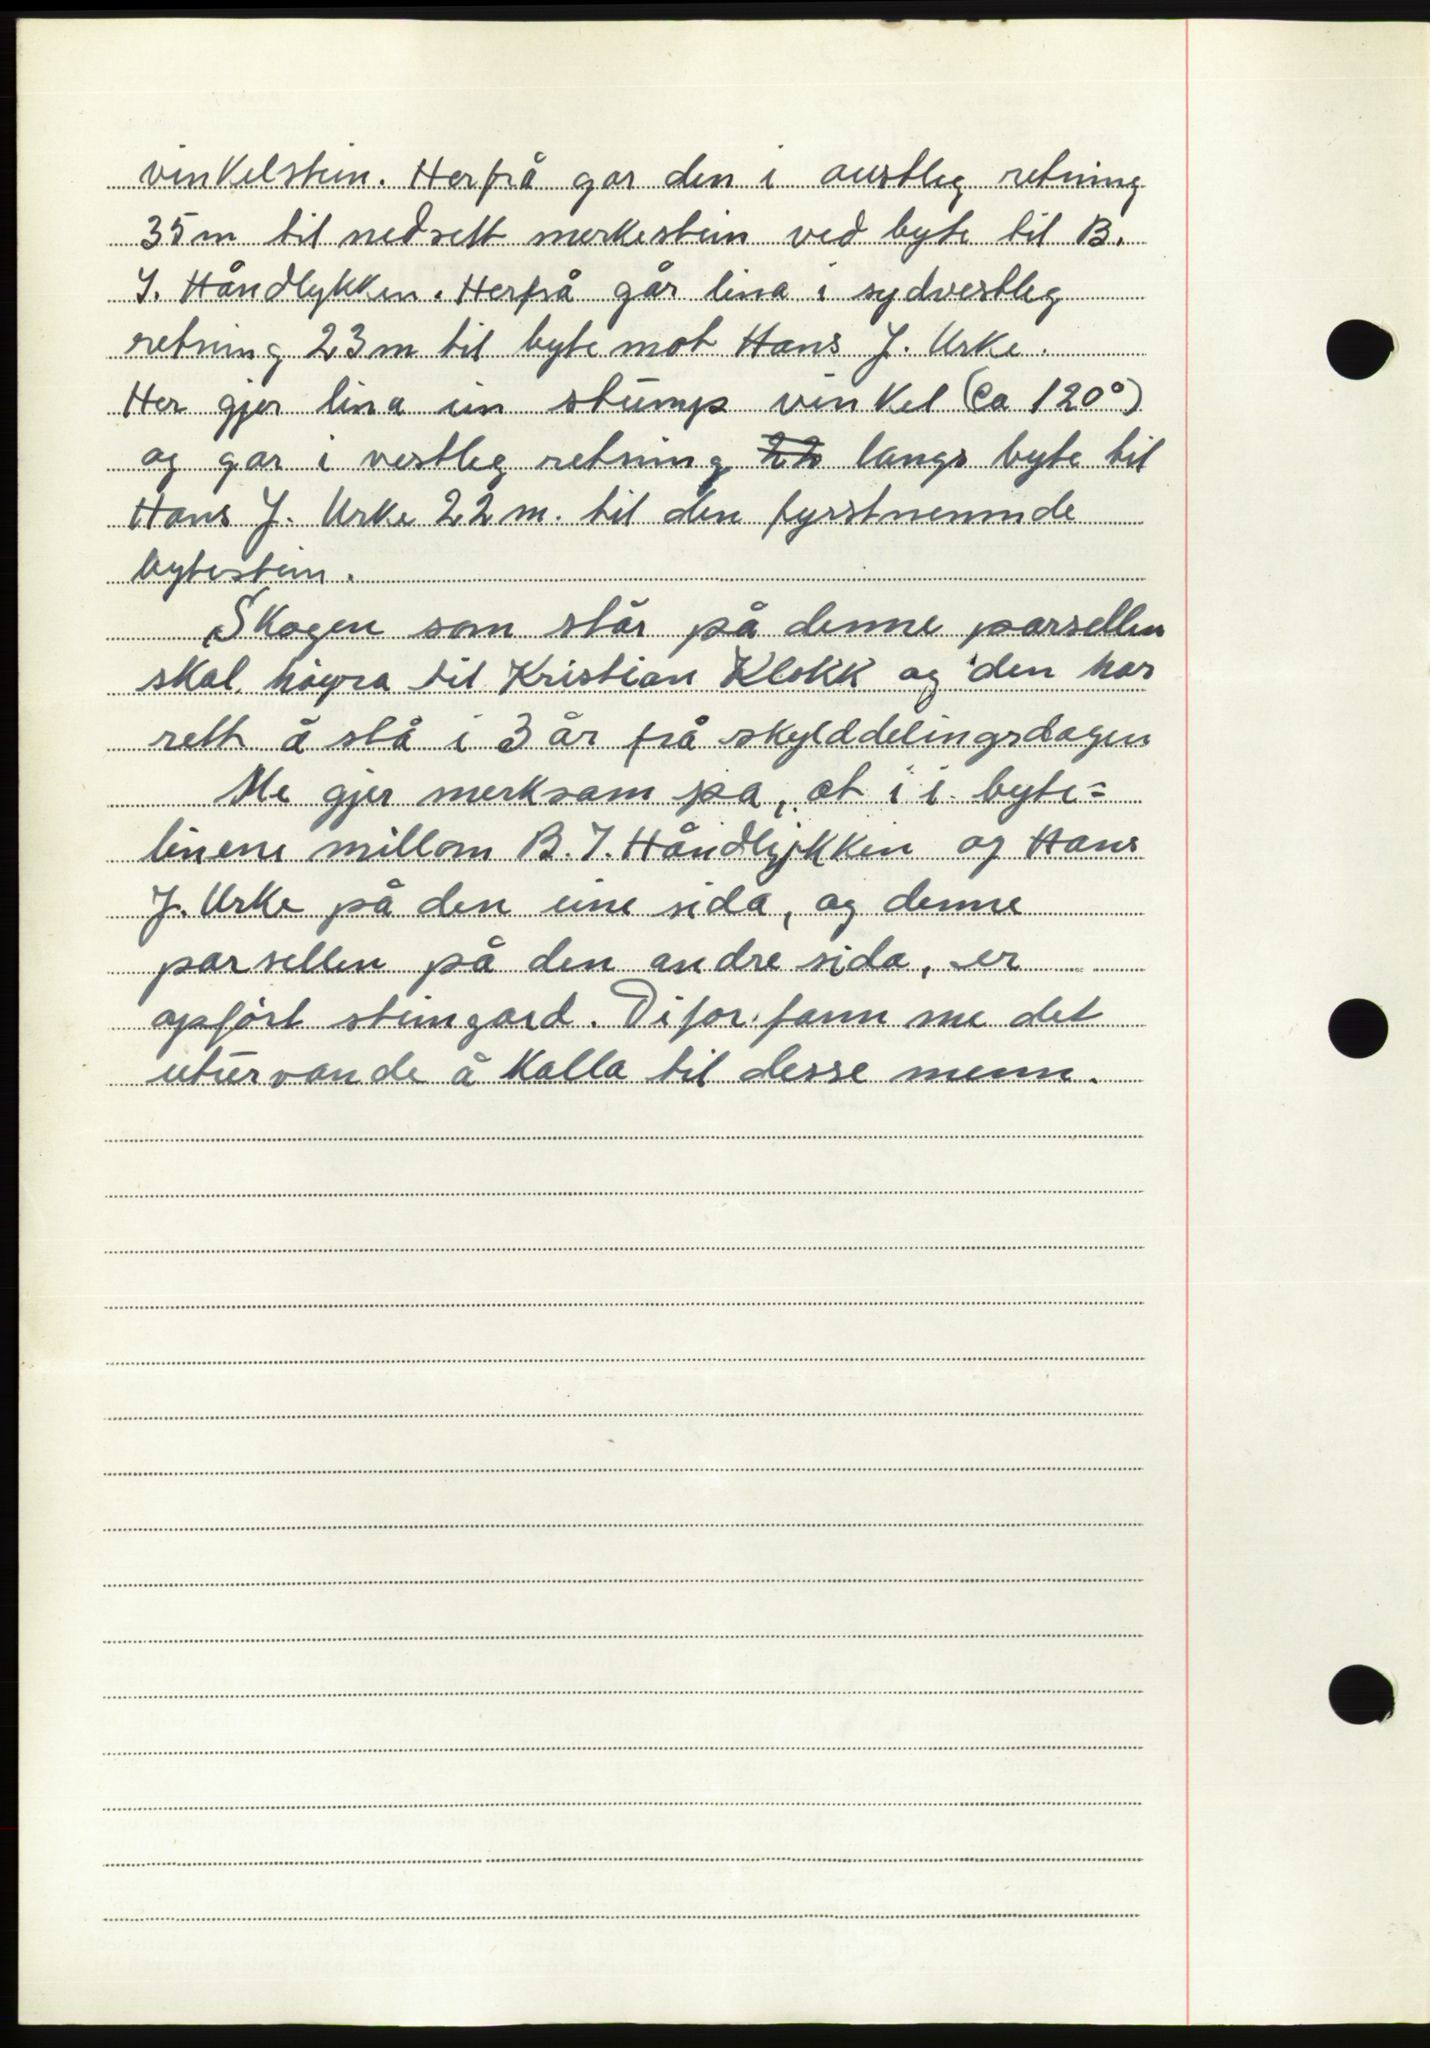 vinkelstein. Herfrå gar den i austleg retning
35 m til nedsett merkestein ved byte til B.
I. Håndlykken. Herfrå går lina i sydvestleg
retning 23 m til byte mot Hans J. Urke.
Her gjer lina ein stump vinkel (ca 120°)
og gar i vestleg retning 22 langs byte til
Hans J. Urke 22 m. til den fyrstnemnde
bytestein.
Skogen som står på denne parsellen
skal høyra til Kristian Klokk og den har
rett å stå i 3 år frå skylddelingsdagen
Me gjer merksam på, at i i byte=
linene millom B. I. Håndlykken og Hans
J. Urke på den eine sida, og denne
parsellen på den andre sida, er
opført steingard. Difor fann me det
uturvande å kalla til desse menn.